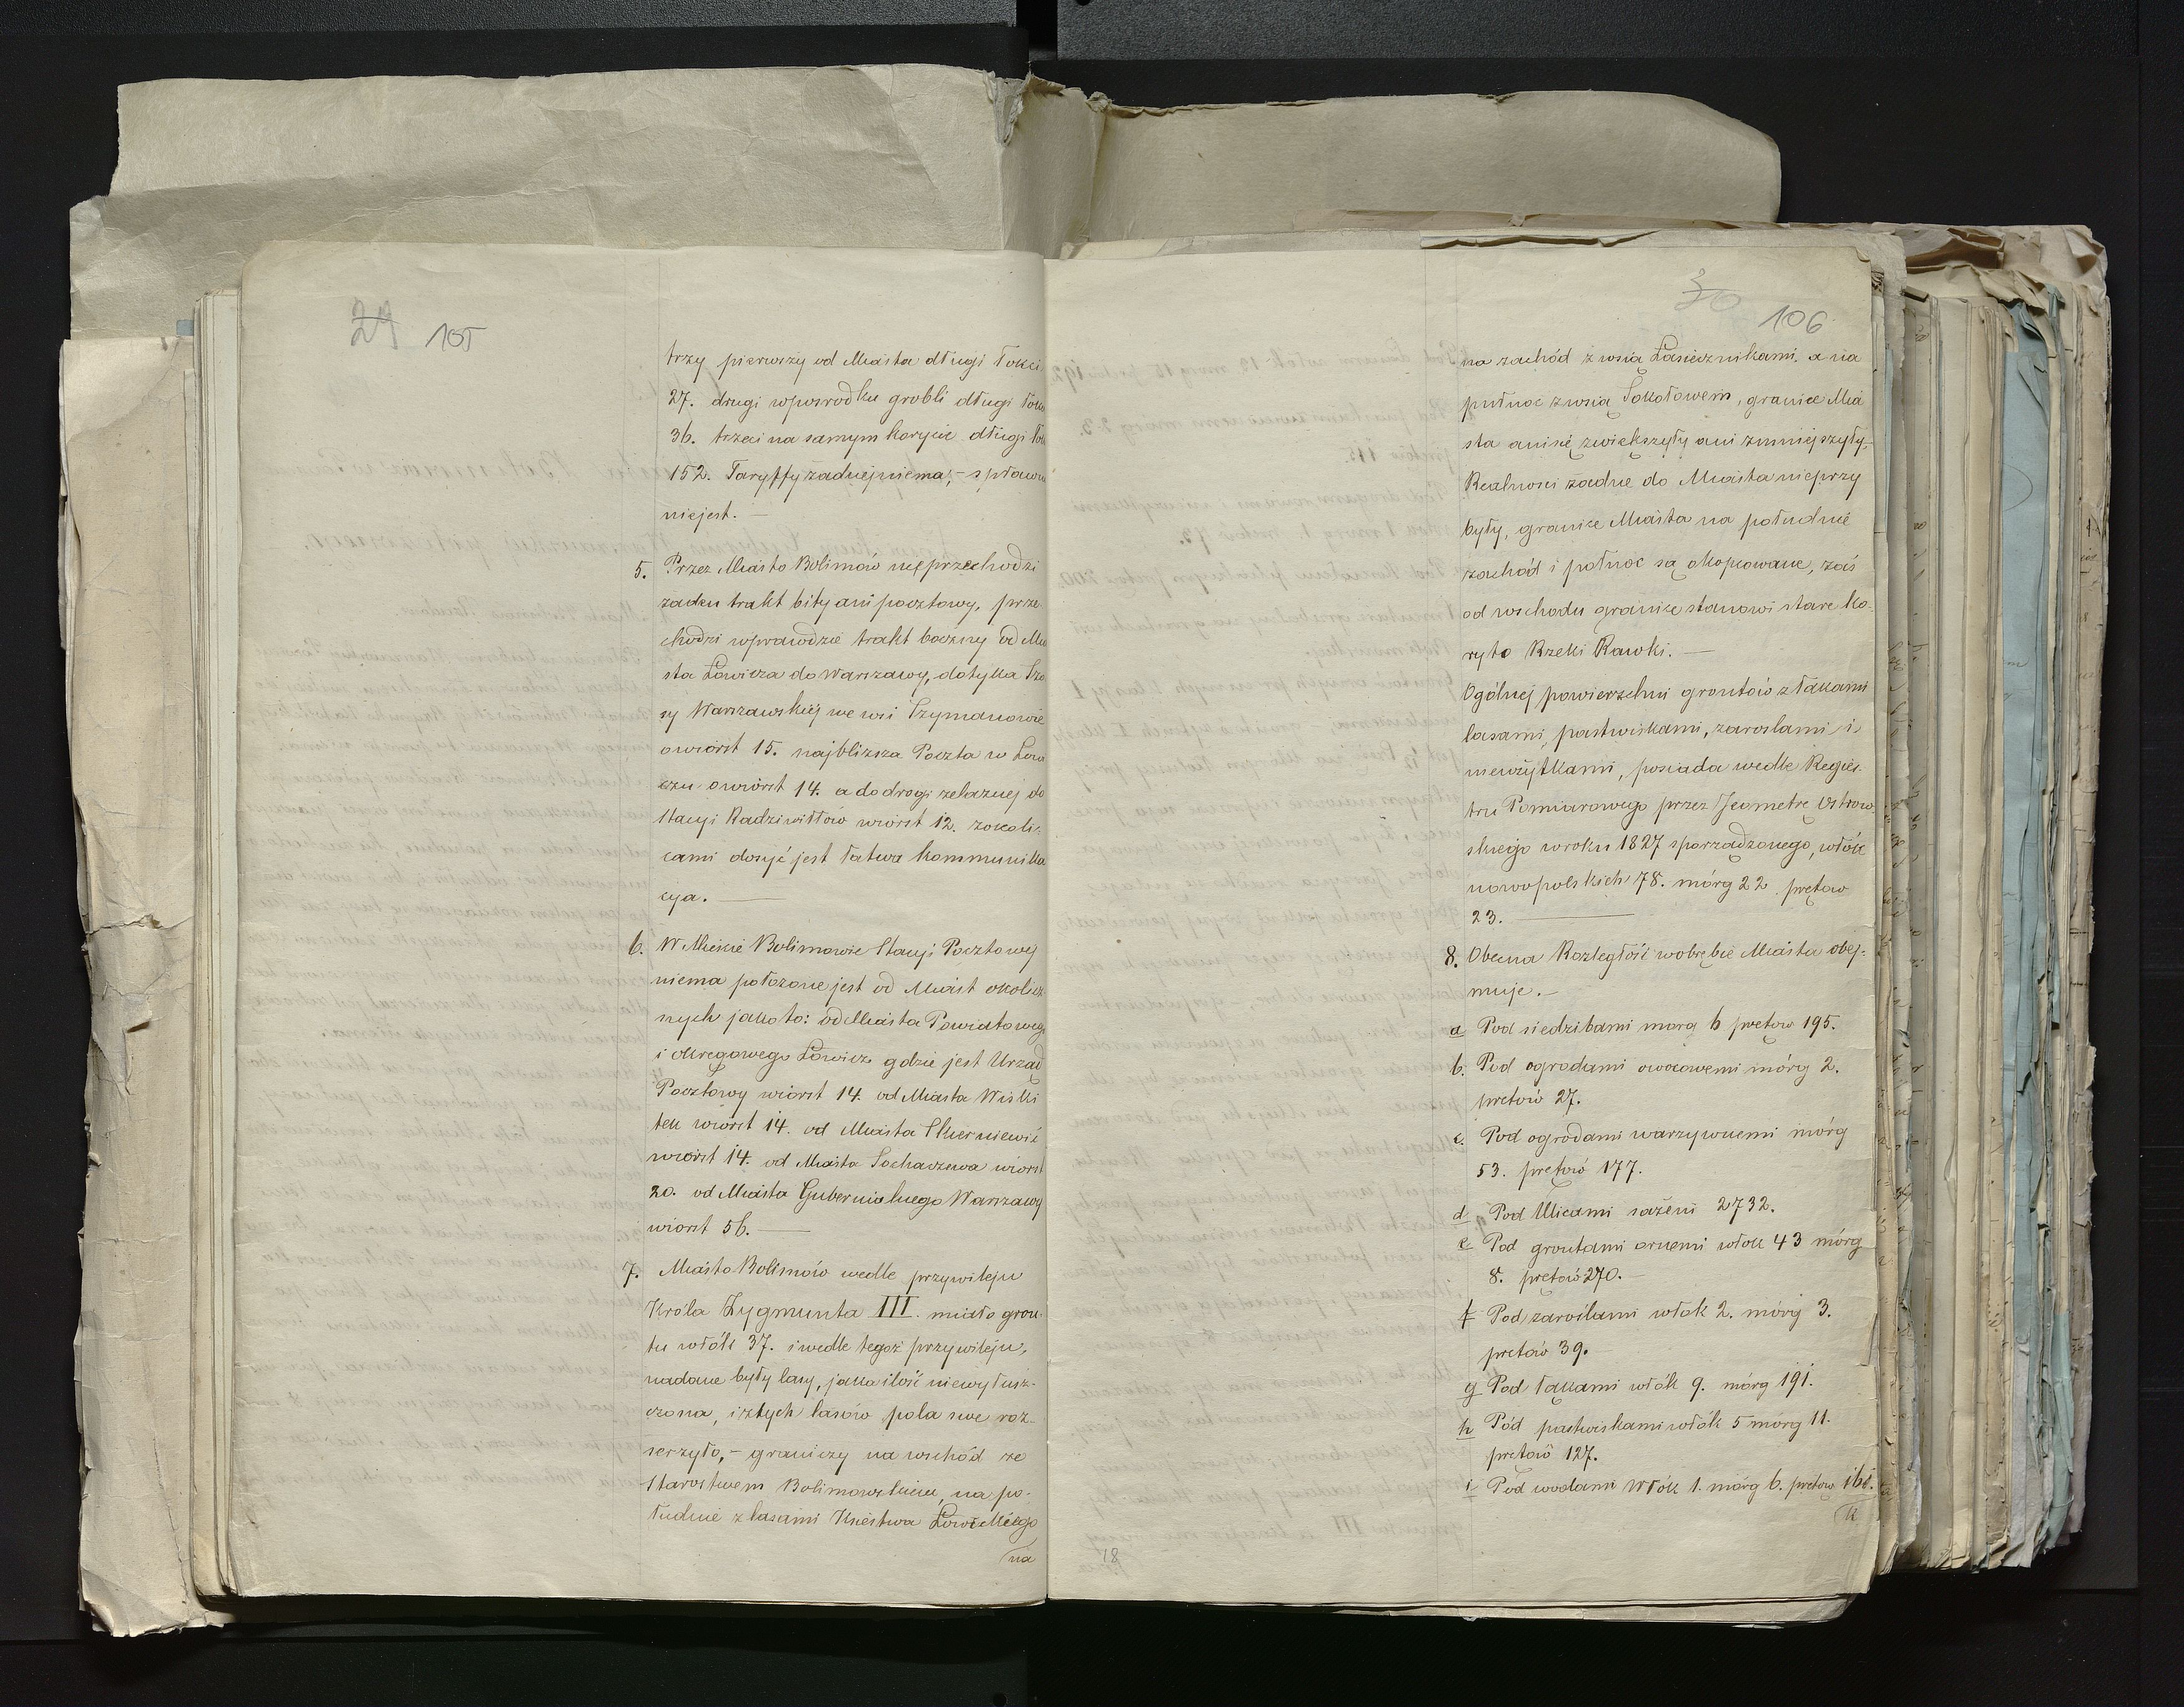 29 105
trzy pierwszy od Miasta długi łokci
27. drugi wposrodku grobli długi łok
36. trzeci na samym korycie długi łok
152. Taryffy żadnej niema, – spławu
niejest. —
5. Przez Miasto Bolimów nieprzechodzi
żaden trakt bity ani pocztowy, prze
chodzi wprawdzie trakt boczny od Mia
sta Łowicza do Warszawy, dotyka Szo
sy Warszawskiej we wsi Szymanowie
owiorst 15. najbliższa Poczta w Łowi
czu owiorst 14. a do drogi żelaznej do
Stacyi Radziwiłłów wiorst 12. zokoli-
cami dosyć jest łatwa kommunika
cyja. —
6. W Mieście Bolimowie Stacyi Pocztowej
niema położone jest od Miast okolicz
nych jako to: od Miasta Powiatowego
i okręgowego Łowicz gdzie jest Urząd
Pocztowy wiorst 14. od Miasta Wiski
tek wiorst 14. od Miasta Skierniewic
wiorst 14. od Miasta Sochaczewa wiorst
20. od Miasta Gubernialnego Warszawy
wiorst 56. —
7. Miasto Bolimów wedle przywileju
Króla Zygmunta III. miało gron-
tu włók 37. i wedle tegoż przywileju,
nadane były lasy, jaka ilość niewytusz-
czona, i ztych lasów pola swe roz-
szerzyło, – graniczy na wschód ze
Starostwem Bolimowskiem na po-
łudnie z lasami Xiestwa Łowickiego
na
30 106
na zachód z wsią Łasiecznikami, a na
pułnoc z wsią Sokołowem, granice Mia
sta anisię zwiekszyły ani zmniejszyły,
Realności żadne do Miasta nieprzy
były, granice Miasta na południe
zachód i połnoc są okopowane, zaś
od wschodu granice stanowi stare ko-
ryto Rzeki Rawki. —
Ogólnej powierzchni grontów z łakami
lasami, pastwiskami, zaroslami i
nieużytkami, posiada wedle Regies-
tru Pomiarowego przez Jeometrę Ostrow-
skiego wroku 1827 sporządzonego, włók
nowopolskich 78. mórg 22 prętow
23. —
8. Obecna Rozległość wobrębie Miasta obej-
muje. —
a Pod siedzibami morg 6 prętow 195.
b. Pod ogrodami owocowemi mórg 2.
pretów 27.
c. Pod ogrodami warzywnemi mórg
53. pretów 177.
d Pod Ulicami sażeni 2732.
e Pod grontami ornemi włok 43 mórg
8. pretów 270. —
f Pod zaroślami włok 2. mórg 3.
pretów 39. —
g Pod łakami włók 9. mórg 191.
h Pod pastwiskami włók 5 mórg 11.
pretów 127.
i Pod wodami Włók 1. mórg 6. pretow 166.
k
18